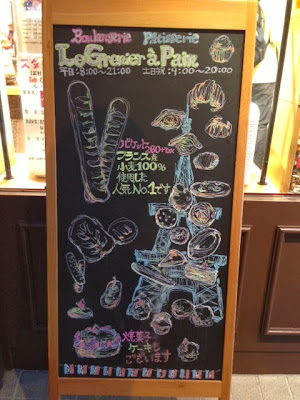 Boulangerie Pâtisserie
Le Grenier à Pain
平日:8:00〜21:00 土日祝:9:00〜20:00
バゲット280+tax
フランス産
小麦100%
使用した
人気No.1です
焼菓子
ケーキも
ございます